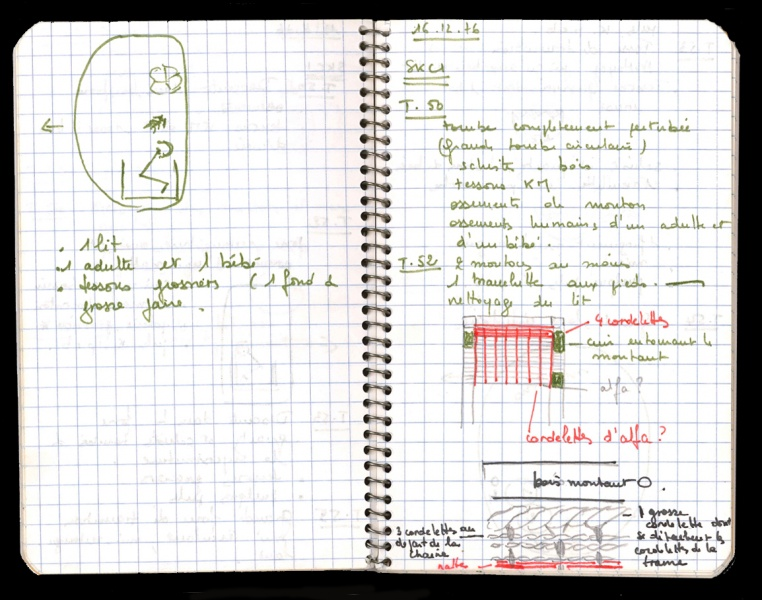 . 1 lit
. 1 adulte et 1 bébé
. tessons grossiers (1 fond de
grosse jarre.
16.12.76
SKC1
T.50
tombe complètement perturbée
(grande tombe circulaire)
schiste . bois
tessons KM
ossements de mouton
ossements humains, d'un adulte et
d'un bébé.
T.52
2 moutons au moins
1 maxelette aux pieds.
nettoyage du lit
4 cordelettes
cuir entourant le
montant
alfa ?
cordelettes d'alfa ?
bois montant O.
3 cordelettes au
départ de la
chaîne
natte
1 grosse
cordelette dont
se détachent les
cordelettes de la
trame